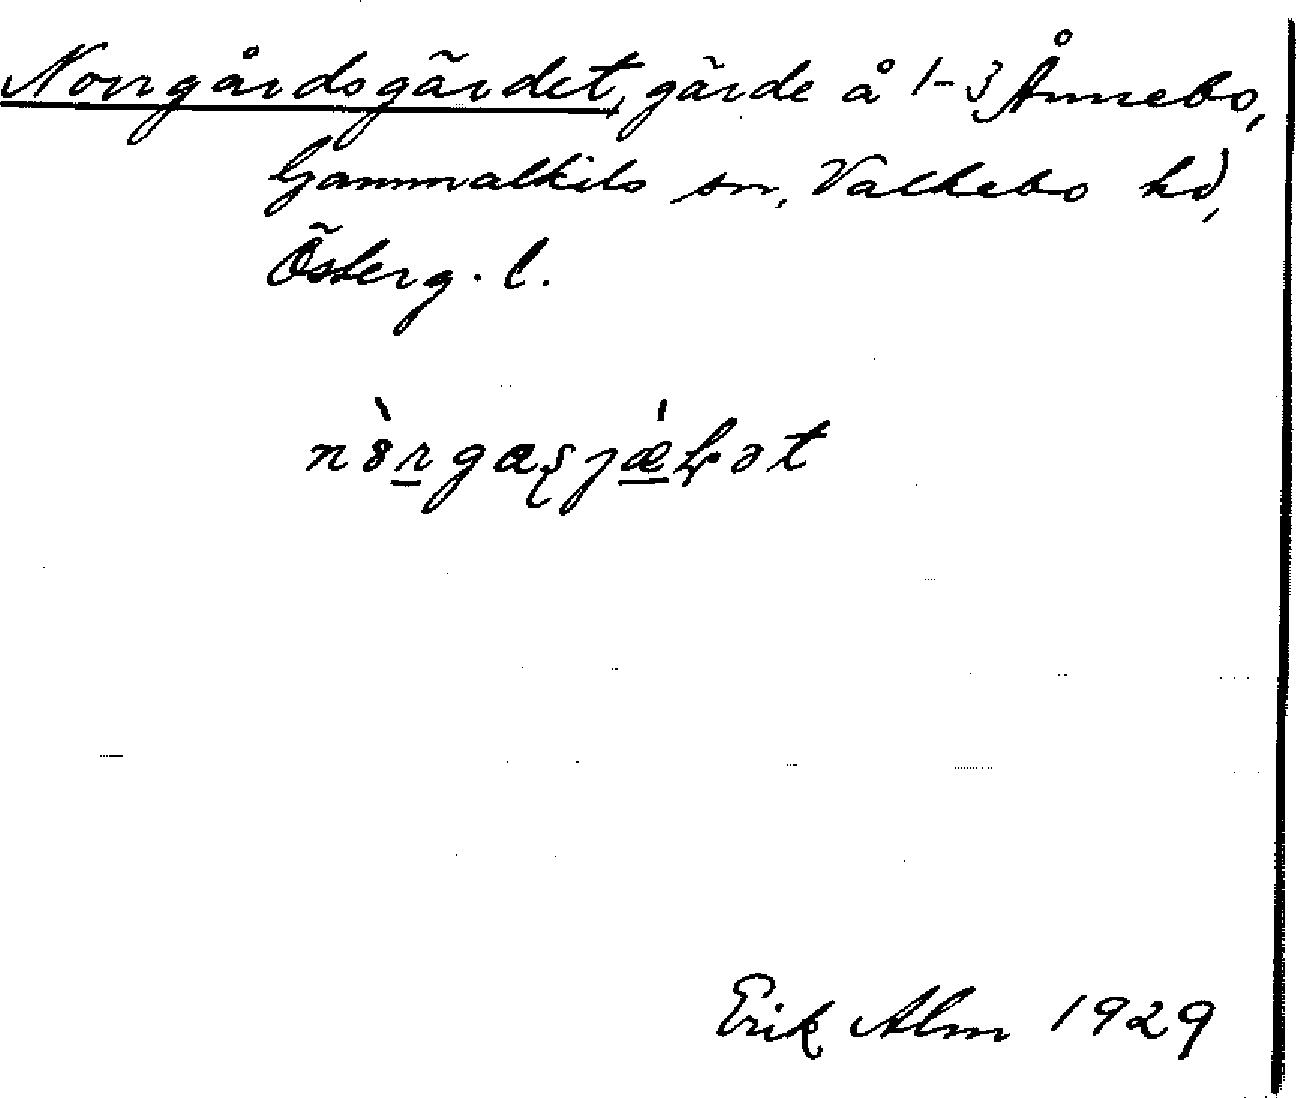 Norrgårdsgärdet, gärde å 1-3 Ånnebo,
Gammalkils sn, Valkebo hd,
Österg. l.
Erik Alm 1929